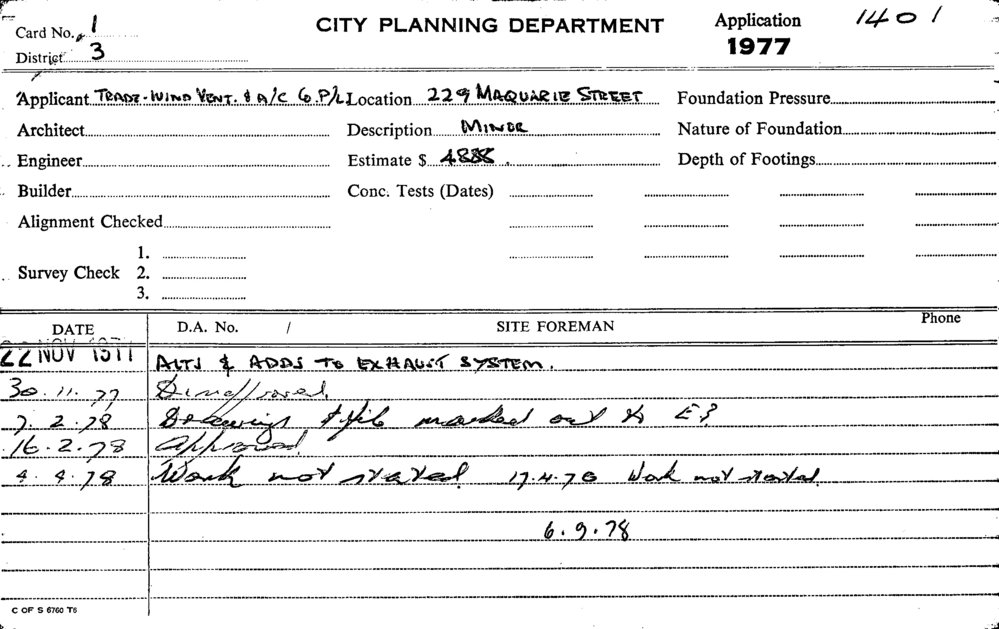 Card No. 1 CITY PLANNING DEPARTMENT Application 1401
District 3 1977
Applicant TRADE-WIND VENT. & A/C Co P/L Location 229 MAQUARIE STREET Foundation Pressure
Architect Description MINOR Nature of Foundation
Engineer Estimate $ 4888. Depth of Footings
Builder Conc. Tests (Dates)
Alignment Checked
1.
Survey Check 2.
3.
DATE D.A. No. / SITE FOREMAN Phone
22 NOV 1977 ALTS & ADDS TO EXHAUST SYSTEM.
30.11.77 Disapproved.
7.2.78 Drawings & file marked out to E?
16.2.78 Approved.
4.4.78 Work not started. 17.4.78 Work not started.
6.9.78
C OF S 6760 T6